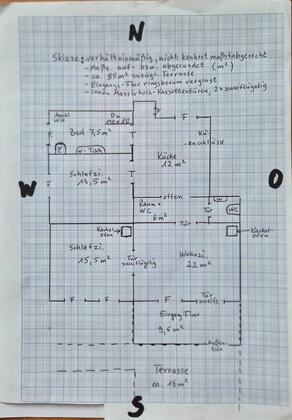 N
Skizze: verhältnismäßig, nicht konkret maßstabgerecht
- Maße auf- bzw. abgerundet (m²)
- ca. 85 m² zuzügl. Terrasse
- Eingang-Flur ringsherum verglast
- Innen Massivholz-Kassettentüren, 2x zweiflügelig
F
F
Bad 7,5 m²
Kü
Küche
12 m²
Schlafzi.
13,5 m²
W
O
offen
Raum +
WC
6 m²
Tür
WC
Tür
Kachel-
ofen
Kachel-
ofen
Schlafzi.
15,5 m²
Tür
zweiflügelig
Wohnzi.
22 m²
F
F
F
Tür
zweifl.
F
Eingang Flur
9,5 m²
Außen-
tür
Terrasse
ca. 16 m²
S